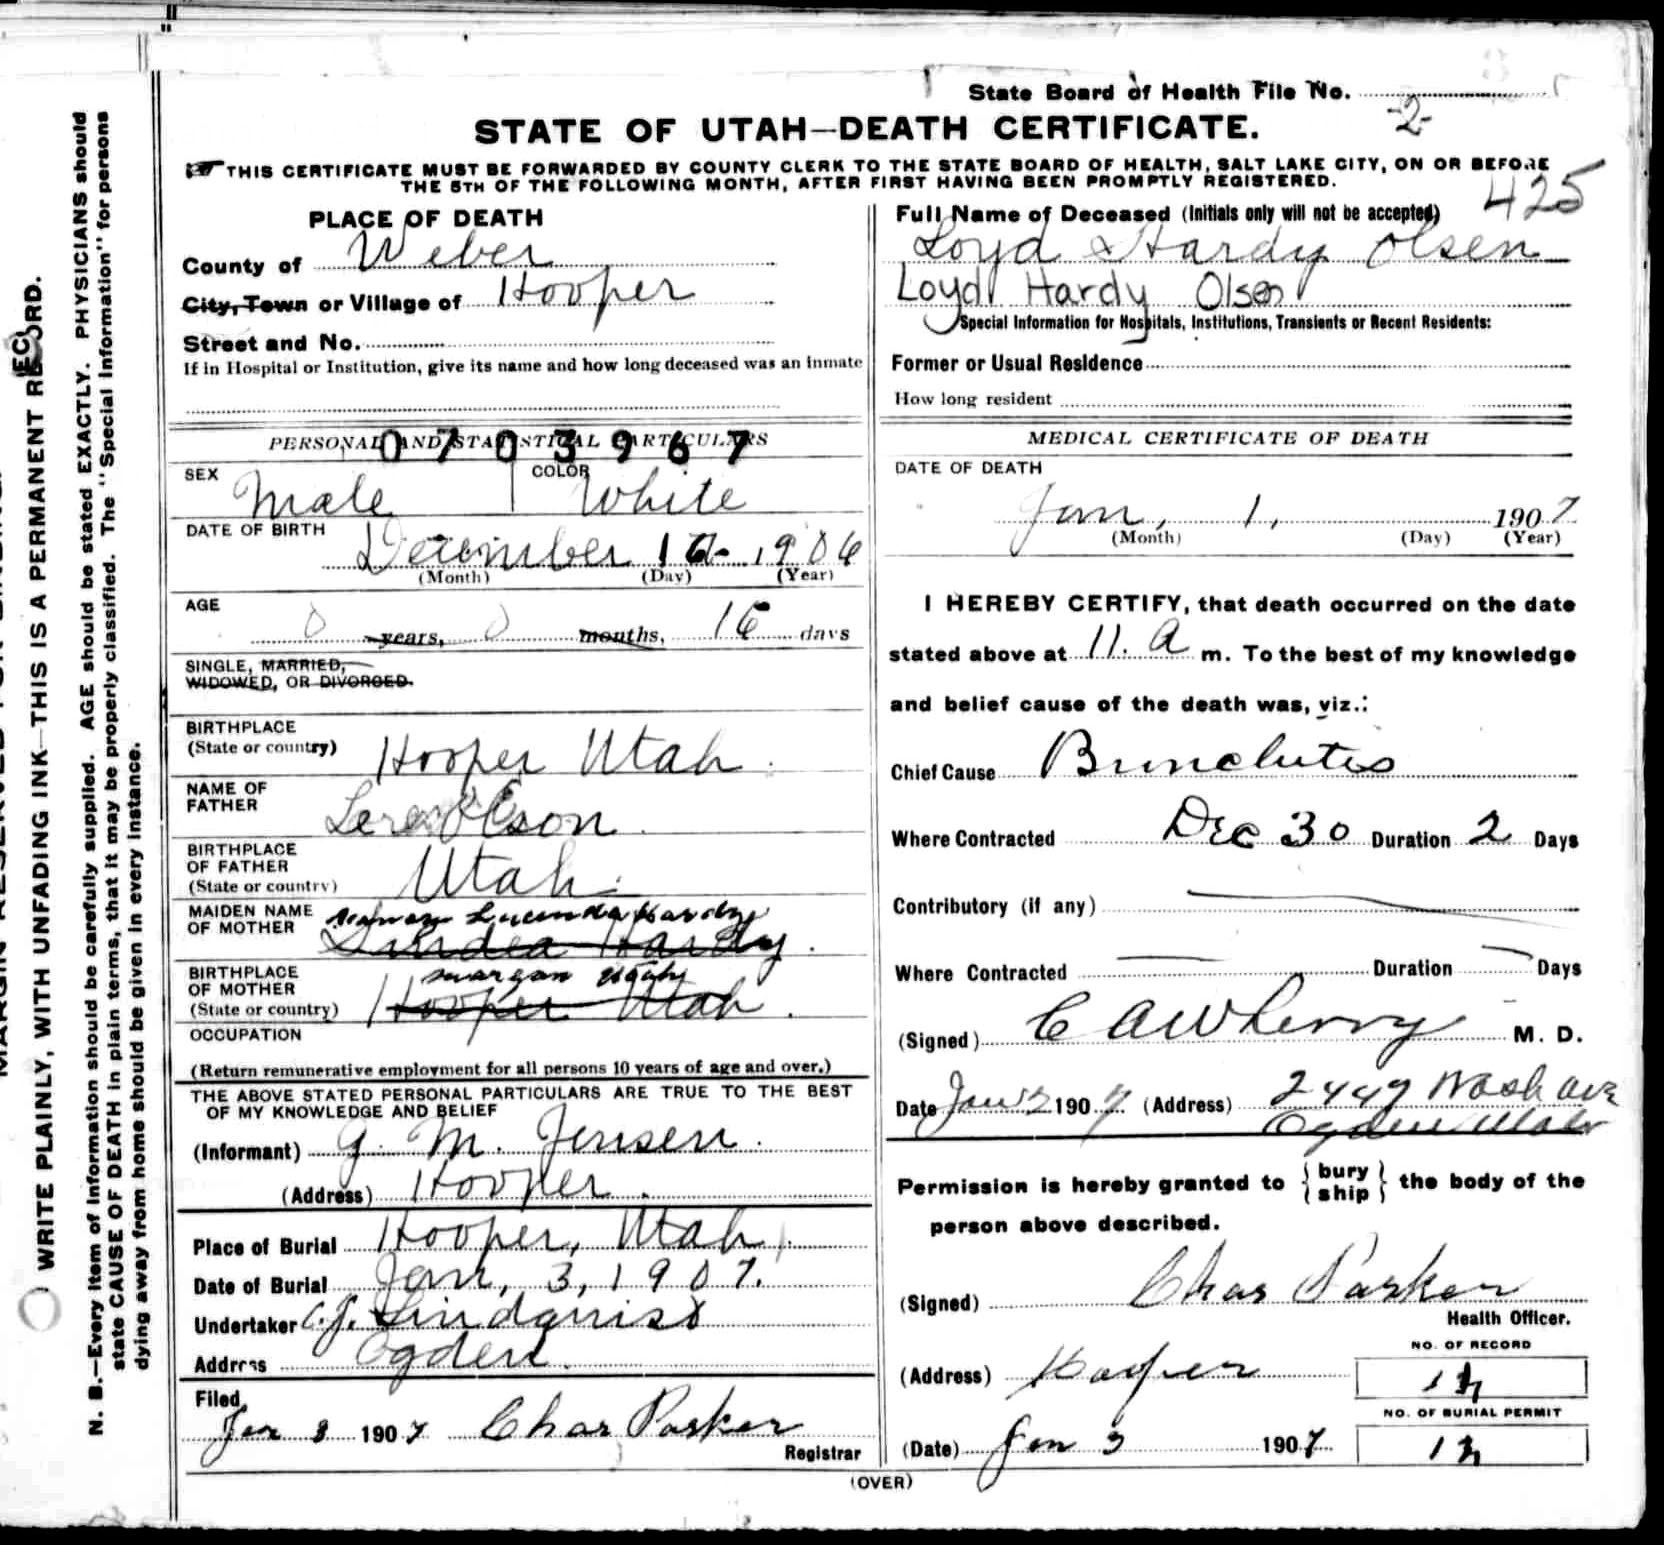 State Board of Health File No.
-2-
STATE OF UTAH—DEATH CERTIFICATE.
THIS CERTIFICATE MUST BE FORWARDED BY COUNTY CLERK TO THE STATE BOARD OF HEALTH, SALT LAKE CITY, ON OR BEFORE
THE 5TH OF THE FOLLOWING MONTH, AFTER FIRST HAVING BEEN PROMPTLY REGISTERED.
425
PLACE OF DEATH
County of Weber
City, Town or Village of Hooper
Street and No.
If in Hospital or Institution, give its name and how long deceased was an inmate
PERSONAL AND STATISTICAL PARTICULARS
0703967
SEX Male COLOR White
DATE OF BIRTH
December 1906
(Month) (Day) (Year)
AGE
0 years, 0 months, 16 days
SINGLE, MARRIED,
WIDOWED, OR DIVORCED.
BIRTHPLACE
(State or country) Hooper Utah
NAME OF
FATHER
BIRTHPLACE
OF FATHER
(State or country) Utah
MAIDEN NAME Lucinda Hardy
OF MOTHER Hardy
BIRTHPLACE
OF MOTHER Morgan Utah
(State or country) Hooper Utah
OCCUPATION
(Return remunerative employment for all persons 10 years of age and over.)
THE ABOVE STATED PERSONAL PARTICULARS ARE TRUE TO THE BEST
OF MY KNOWLEDGE AND BELIEF
(Informant) G. M. Jensen
(Address) Hooper
Place of Burial Hooper, Utah
Date of Burial Jan, 3, 1907.
Undertaker C.J. Lindquist
Address Ogden
Filed
Jan 1907 Chas Parker
Registrar
Full Name of Deceased (Initials only will not be accepted)
Loyd Hardy Olsen
Loyd Hardy Olsen
Special Information for Hospitals, Institutions, Transients or Recent Residents:
Former or Usual Residence
How long resident
MEDICAL CERTIFICATE OF DEATH
DATE OF DEATH
Jan, 1, 1907
(Month) (Day) (Year)
I HEREBY CERTIFY, that death occurred on the date
stated above at 11. a m. To the best of my knowledge
and belief cause of the death was, viz.:
Chief Cause Bronchitis
Where Contracted Dec 30 Duration 2 Days
Contributory (if any)
Where Contracted Duration Days
(Signed) M. D.
Date Jan 2 1907 (Address) 2447 Wash ave
Ogden Utah
Permission is hereby granted to { bury ship } the body of the
person above described.
(Signed) Chas Parker
Health Officer.
(Address) Hooper
NO. OF RECORD
NO. OF BURIAL PERMIT
(Date) Jan 1907
(OVER)
WRITE PLAINLY, WITH UNFADING INK—THIS IS A PERMANENT RECORD.
N. B.—Every item of information should be carefully supplied. AGE should be stated EXACTLY. PHYSICIANS should
state CAUSE OF DEATH in plain terms, that it may be properly classified. The "Special Information" for persons
dying away from home should be given in every instance.